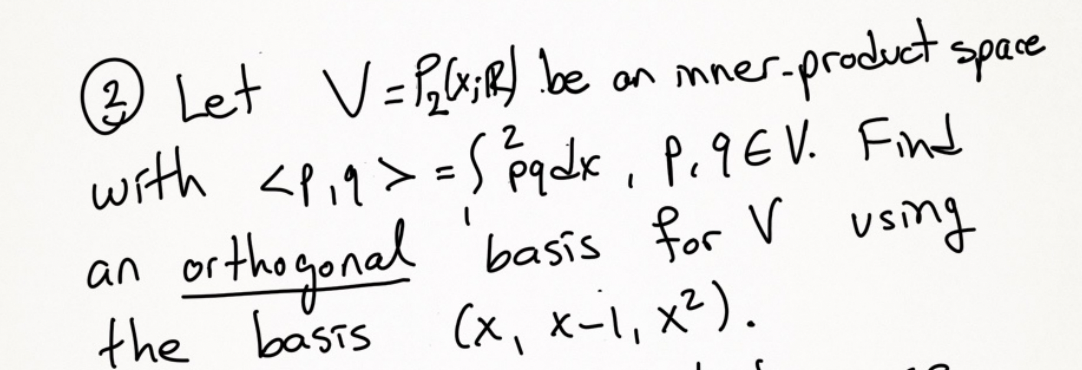 ② Let V = P₂(x;ℝ) be an inner-product space
with <p,q> = ∫₁² pqdx, p,q ∈ V. Find
an orthogonal basis for V using
the basis (x, x-1, x²).